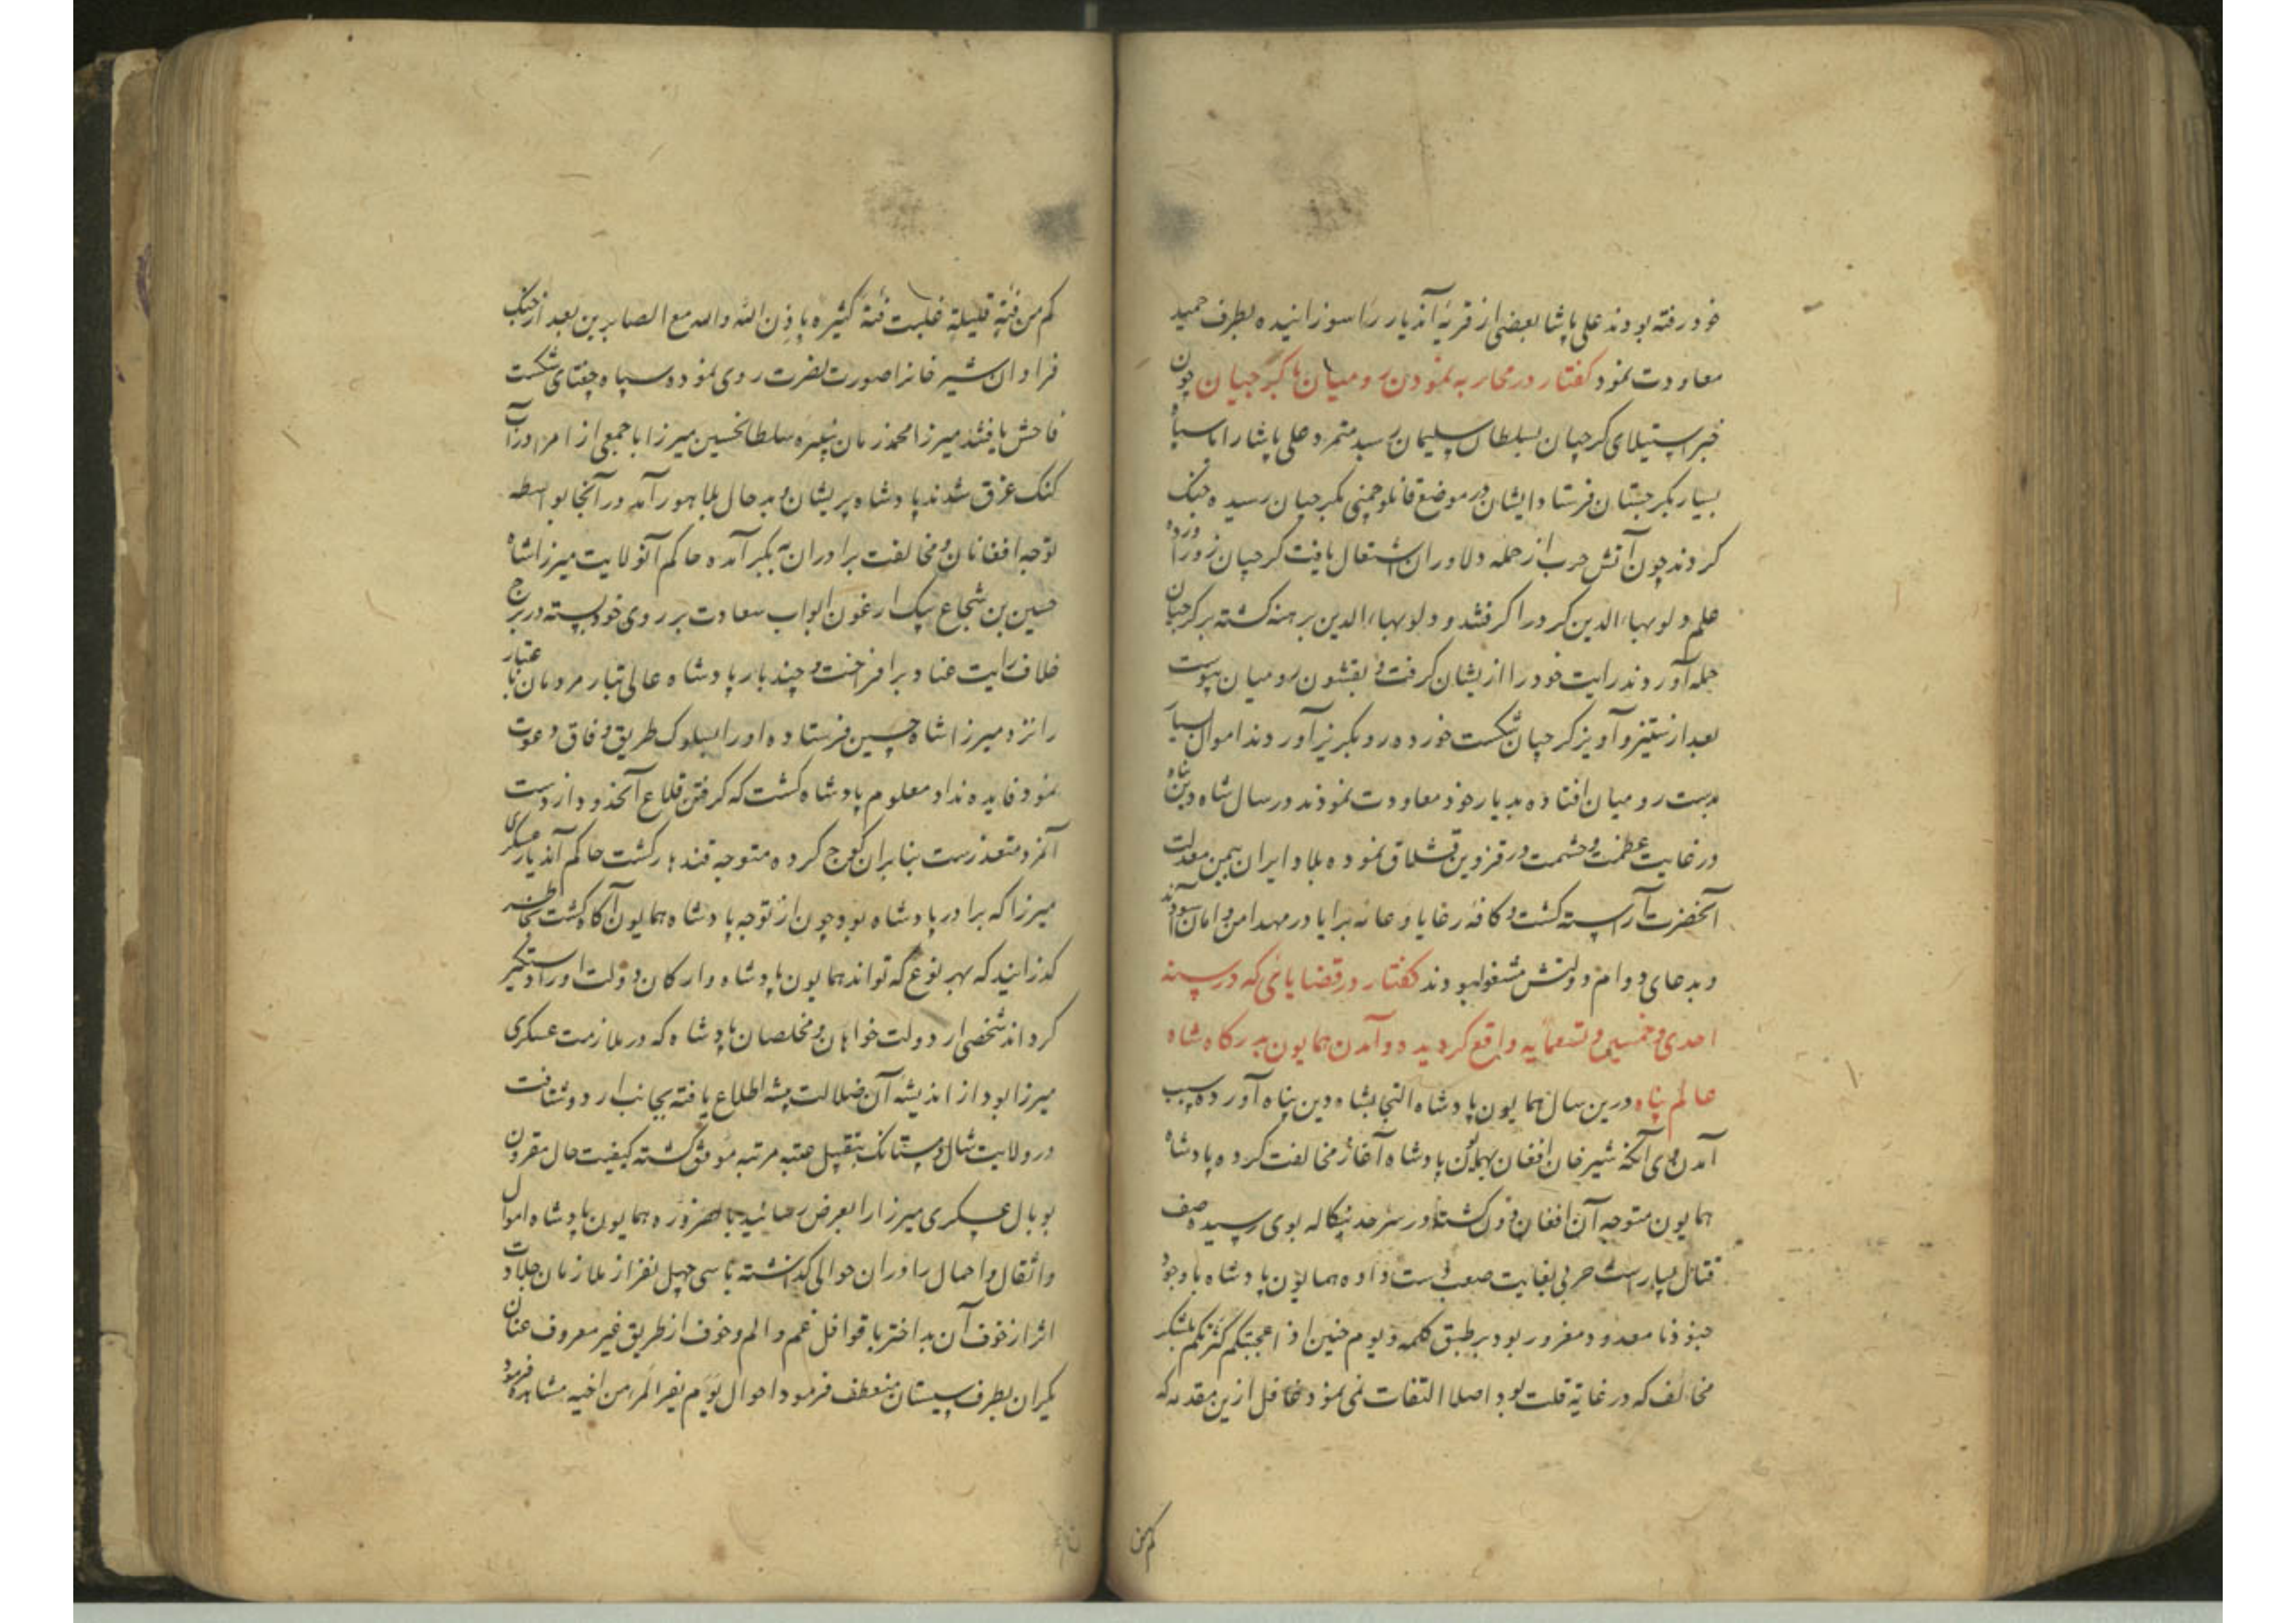 خود رفته بودند علی پاشا بعضی از قریهٔ آندیار را سوزانیده بطرف حمید
معاودت نمود کفتار در محاربه نمودن رومیان با کرجیان چون
خبر استیلای کرجیان بسلطان سلیمان رسید متمرد علی پاشا را با سپاه
بسیار بکرجستان فرستاد ایشان در موضع قانلو چمنی بکرجیان رسیده جنک
کردند چون آتش حرب از حمله دلاوران اشتعال یافت کرجیان زور آورده
علم دلو بهاء الدین کرد را کرفتند و دلو بهاء الدین برهنه کشته بر کرجیان
حمله آوردند رایت خود را از یشان کرفت و بقشون رومیان پیوست
بعد از ستیز و آویز کرجیان شکست خورده رو بکریز آوردند اموال بسیار
بدست رومیان افتاده بدیار خود معاودت نمودند در سال شاه دین پناه
در غایت عظمت و حشمت در قزوین قشلاق نموده بلاد ایران بیمن معدلت
آنحضرت آراسته کشت و کافهٔ رعایا و عامه برایا در مهد امن و امان آسودند
و بدعای دوام دولتش مشغول بودند کفتار در قضایائی که در سنه
احدی و خمسین و تسعمایه واقع کردیده و آمدن همایون بدرکاه شاه
عالم پناه درین سال همایون پادشاه التجا بشاه دین پناه آورده سبب
آمدن وی آنکه شیر خان افغان بهمایون پادشاه آغاز مخالفت کرده پادشاه
همایون متوجه آن افغان دون کشته در سرحد بنکاله بوی رسیده صف
قتال بیاراست حربی بغایت صعب دست داده همایون پادشاه با وجود
جنود نا معدود مغرور بود بر طبق کلمه و یوم حنین اذ اعجبتکم کثرتکم بلشکر
مخالف که در غایة قلت بود اصلا التفات نمی نمود غافل ازین مقدمه که
کم من
کم من فئة قلیلة غلبت فئة کثیره باذن الله والله مع الصابرین بعد از جنک
فراوان شیر خانرا صورت نصرت روی نموده سپاه چغتای شکست
فاحش یافتند میرزا محمد زمان نبیره سلطانحسین میرزا با جمعی از امرا در آب
کنک غرق شدند پادشاه پریشان و بد حال بلاهور آمد در آنجا بواسطه
توجه افغانان و مخالفت برادران به بکر آمده حاکم آنولایت میرزا شاه
حسین بن شجاع بیک ارغون ابواب سعادت بر روی خود بسته در برج
خلاف رایت عناد برافراخت و چند بار پادشاه عالی تبار مردمان با عتبار
را نزد میرزا شاه حسین فرستاده او را بسلوک طریق وفاق دعوت
نمود فایده نداد معلوم پادشاه کشت که کرفتن قلاع آنحدود از دست
آنمرد متعذرست بنا بران کوچ کرده متوجه قندهار کشت حاکم آندیار عسکری
میرزا که برادر پادشاه بود چون از توجه پادشاه همایون آکاه کشت بخاطر
کذرانید که بهر نوع که تواند همایون پادشاه و ارکان دولت او را دستکیر
کرداند شخصی از دولت خواهان و مخلصان پادشاه که در ملازمت عسکری
میرزا بود از اندیشهٔ آن ضلالت پیشه اطلاع یافته بجانب اردو شتافت
در ولایت شال و مستانک بتقبیل عتبه مرتبه موفق کشته کیفیت حال مقرون
بوبال عسکری میرزا را بعرض رسانید بالضروره همایون پادشاه اموال
و اثقال و احمال را در ان حوالی کذاشته با سی چهل نفر از ملازمان جلادت
اثر از خوف آن بد اختر با قوافل غم و الم و خوف از طریق غیر معروف عنان
یکران بطرف سیستان منعطف فرمود احوال یوم یفر المرء من اخیه مشاهده فرمود